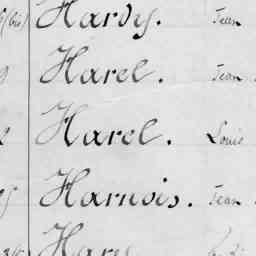 (bis) Hardy. Jean
Harel. Jean
Harel. Louis
Harnois. Jean